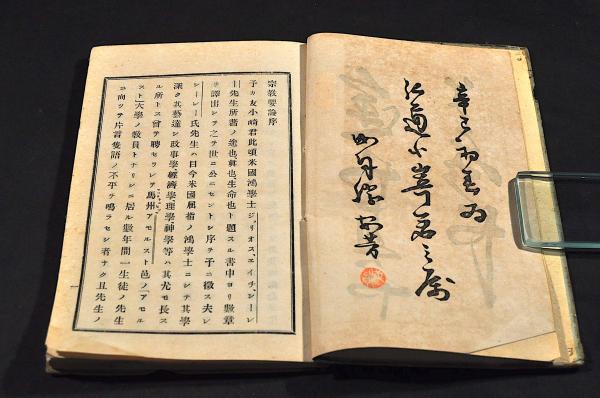 辛巳初春為
弘道小崎君之属
海舟勝安芳
宗教要論序
予カ友小崎君此頃米國鴻學士ジリオス、エイチ、シーレ
ー先生所著ノ途也眞也生命也ト題スル書中ヨリ數章
ヲ譯出シテ之ヲ世ニ公ニセントシ序ヲ予ニ徴ス夫レ
シーレー氏先生ハ目今米國屈指ノ鴻學士ニシテ其學
深ク其藝達シ政事學經濟學理學神學等ハ其尤モ長ス
ル所トス曾テ聘セラレテ馬州アモルスト邑ノ「アモル
スト」大學ノ敎員トナリシニ居ル數年間一生徒ノ先生
ニ向ツテ片言隻語ノ不平ヲ鳴ラセシ者ナク且先生ノ